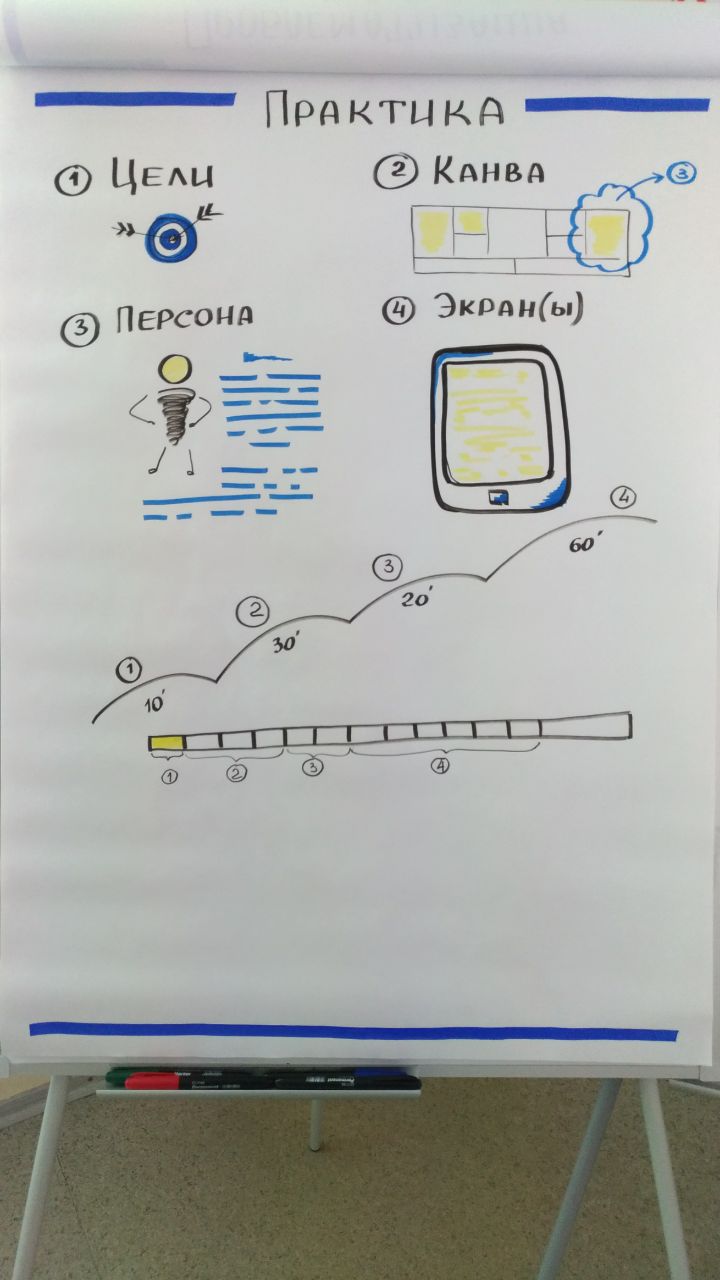 ПРАКТИКА
1 ЦЕЛИ
2 КАНВА
3
3 ПЕРСОНА
4 ЭКРАН(Ы)
4
60'
3
20'
2
30'
1
10'
1 2 3 4